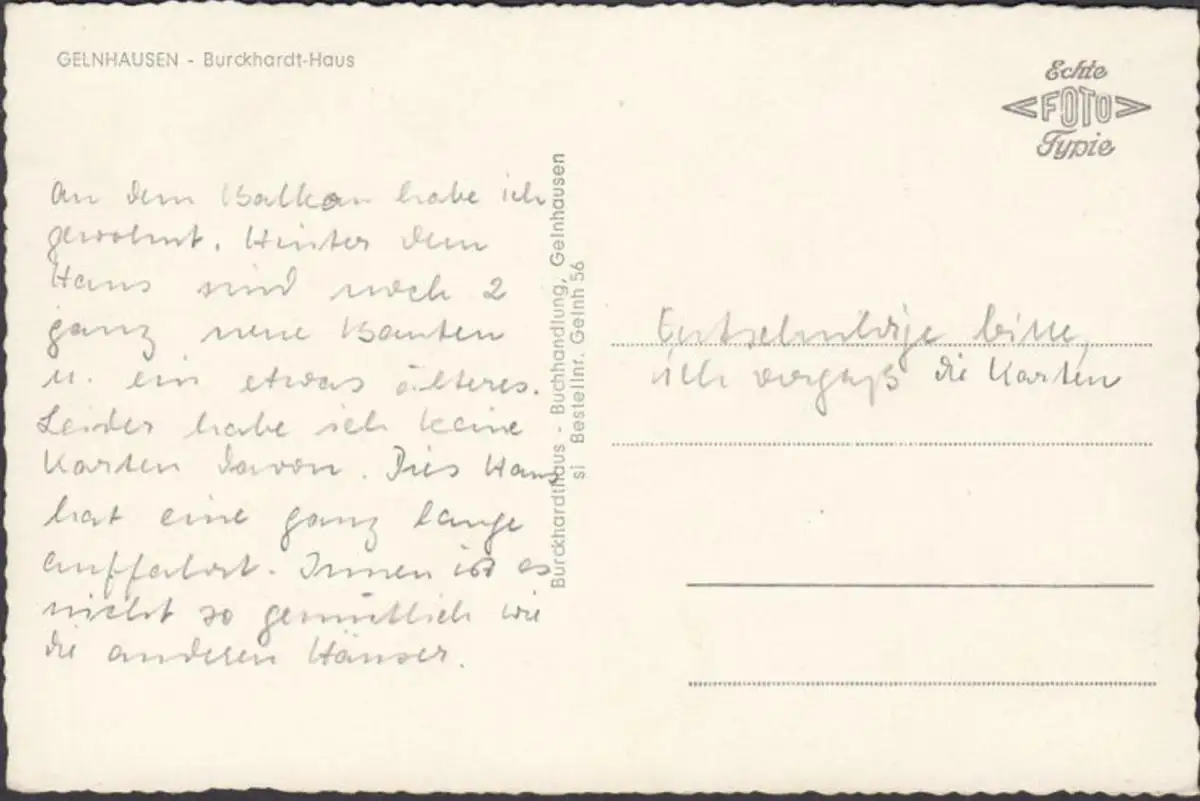 GELNHAUSEN - Burckhardt-Haus
Echte
FOTO
Typie
An dem Balkon habe ich
gewohnt. Hinter dem
Haus sind noch 2
ganz neue Bauten
u. ein etwas älteres.
Leider habe ich keine
Karten davon. Dies Haus
hat eine ganz lange
Auffahrt. Innen ist es
nicht so gemütlich wie
die anderen Häuser.
Burckhardthaus - Buchhandlung, Gelnhausen
si Bestellnr. Gelnh 56
Entschuldige bitte,
ich vergaß die Karten